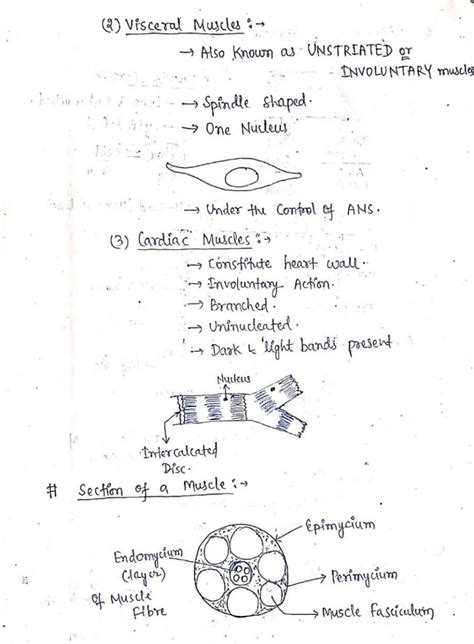 (2) Visceral Muscles :→
→ Also Known as UNSTRIATED or
INVOLUNTARY muscles
→ Spindle Shaped.
→ One Nucleus
→ Under the Control of ANS.
(3) Cardiac Muscles :→
→ Constitute heart wall.
→ Involuntary Action.
→ Branched.
→ Uninucleated.
→ Dark & light bands present
Nucleus
Intercalcated
Disc.
# Section of a Muscle :→
Epimycium
Endomycium
(layer)
of Muscle
Fibre
→ Perimycium
→ Muscle Fasciculum